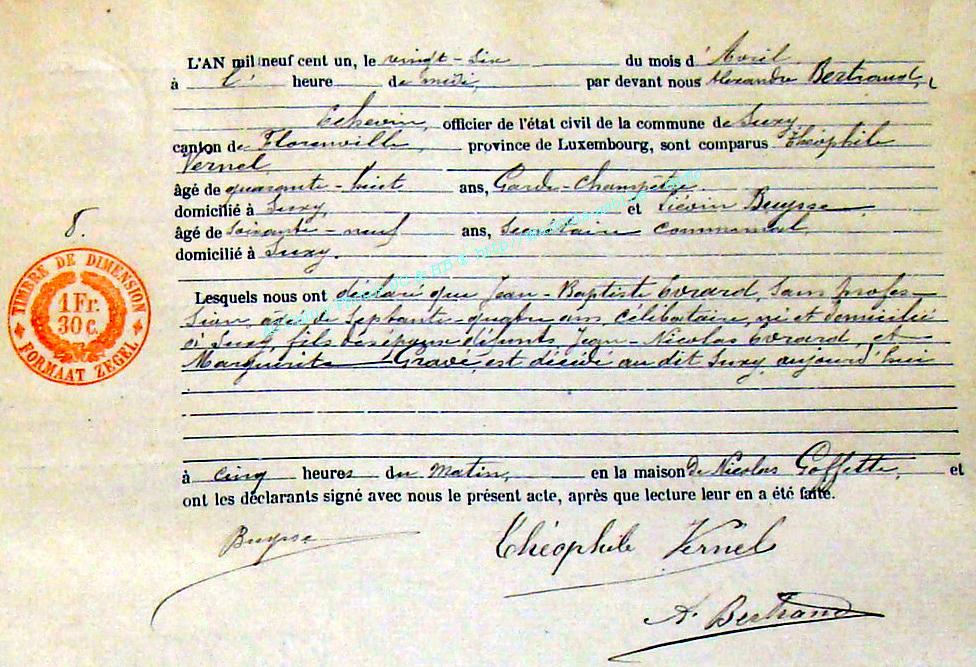 L'AN mil neuf cent un, le vingt-six du mois d' Avril
à L' heure de midi, par devant nous Alexandre Bertrand,
Echevin, officier de l'état civil de la commune de Suxy,
canton de Florenville, province de Luxembourg, sont comparus Théophile
Vernel
âgé de quarante-huit ans, Garde-Champêtre
domicilié à Suxy, et Liévin Buysse
âgé de Soixante-neuf ans, Secrétaire communal,
domicilié à Suxy.
8.
TIMBRE DE DIMENSION
1 Fr.
30 c.
FORMAAT ZEGEL
Lesquels nous ont déclaré que Jean-Baptiste Evrard, Sans profes-
sion, âgé de Septante-quatre ans, célibataire, né et domicilié
à Suxy, fils des époux défunts, Jean-Nicolas Evrard, et
Marguerite Gravé, est décédé au dit Suxy, aujourd'hui
à cinq heures du matin, en la maison de Nicolas Goffette, et
ont les déclarants signé avec nous le présent acte, après que lecture leur en a été faite.
Buysse
Théophile Vernel
A. Bertrand